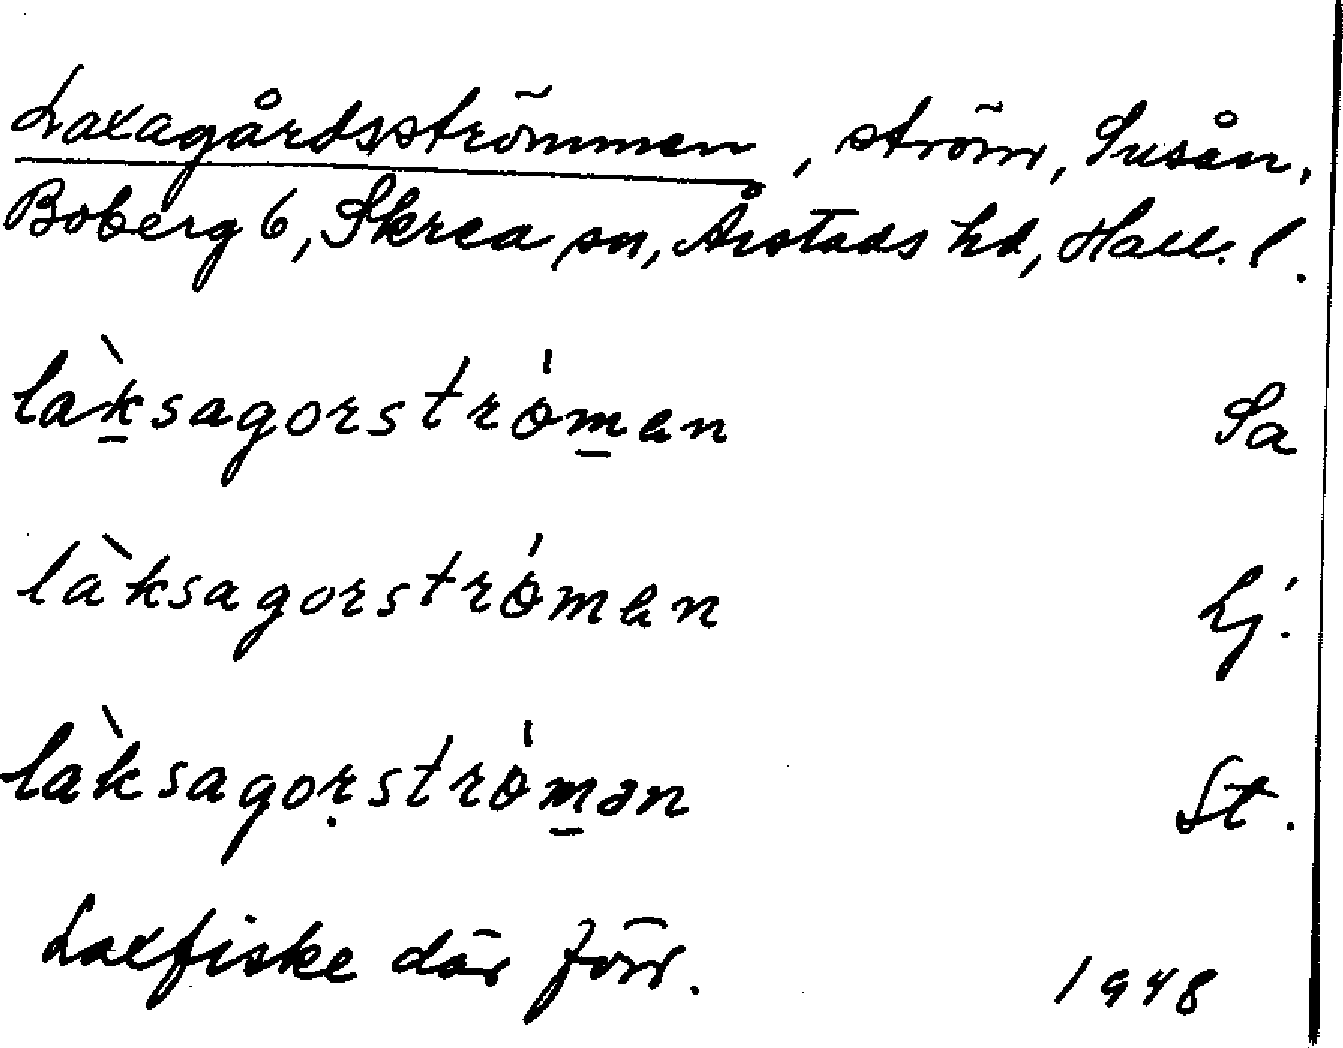 Laxagårdsströmmen, ström, Susån,
Boberg 6, Skrea sn, Årstads hd, Hall. l.
làksagorstrǿmen Sa
làksagorstrǿmen Lj.
làksagoṛstrǿmən St.
Laxfiske där förr. 1948